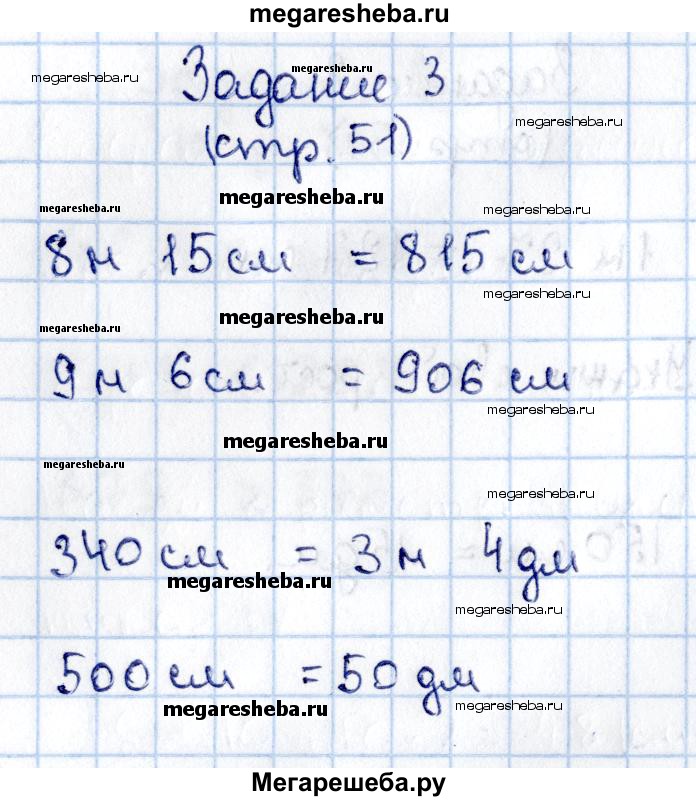 megaresheba.ru
megaresheba.ru
megaresheba.ru
Задание 3
megaresheba.ru
(стр. 51)
megaresheba.ru
megaresheba.ru
megaresheba.ru
8 м 15 см = 815 см
megaresheba.ru
megaresheba.ru
megaresheba.ru
9 м 6 см = 906 см
megaresheba.ru
megaresheba.ru
megaresheba.ru
megaresheba.ru
340 см = 3 м 4 дм
megaresheba.ru
megaresheba.ru
500 см = 50 дм
megaresheba.ru
megaresheba.ru
Мегарешеба.ру